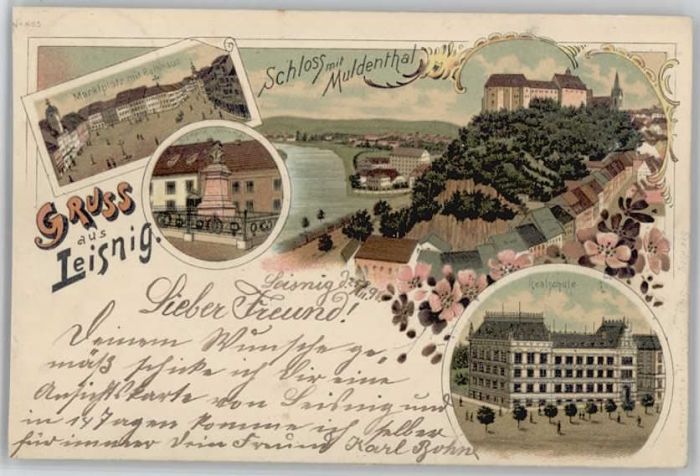 Marktplatz mit Rathhaus
Schloss mit
Muldenthal
GRUSS
aus
Leisnig.
Realschule
Leisnig d.
Lieber Freund!
Deinem Wunsche ge,
mäß schicke ich Dir eine
Ansichtskarte von Leisnig und
in 14 Tagen komme ich selber
für immer Dein Freund Karl Bohn